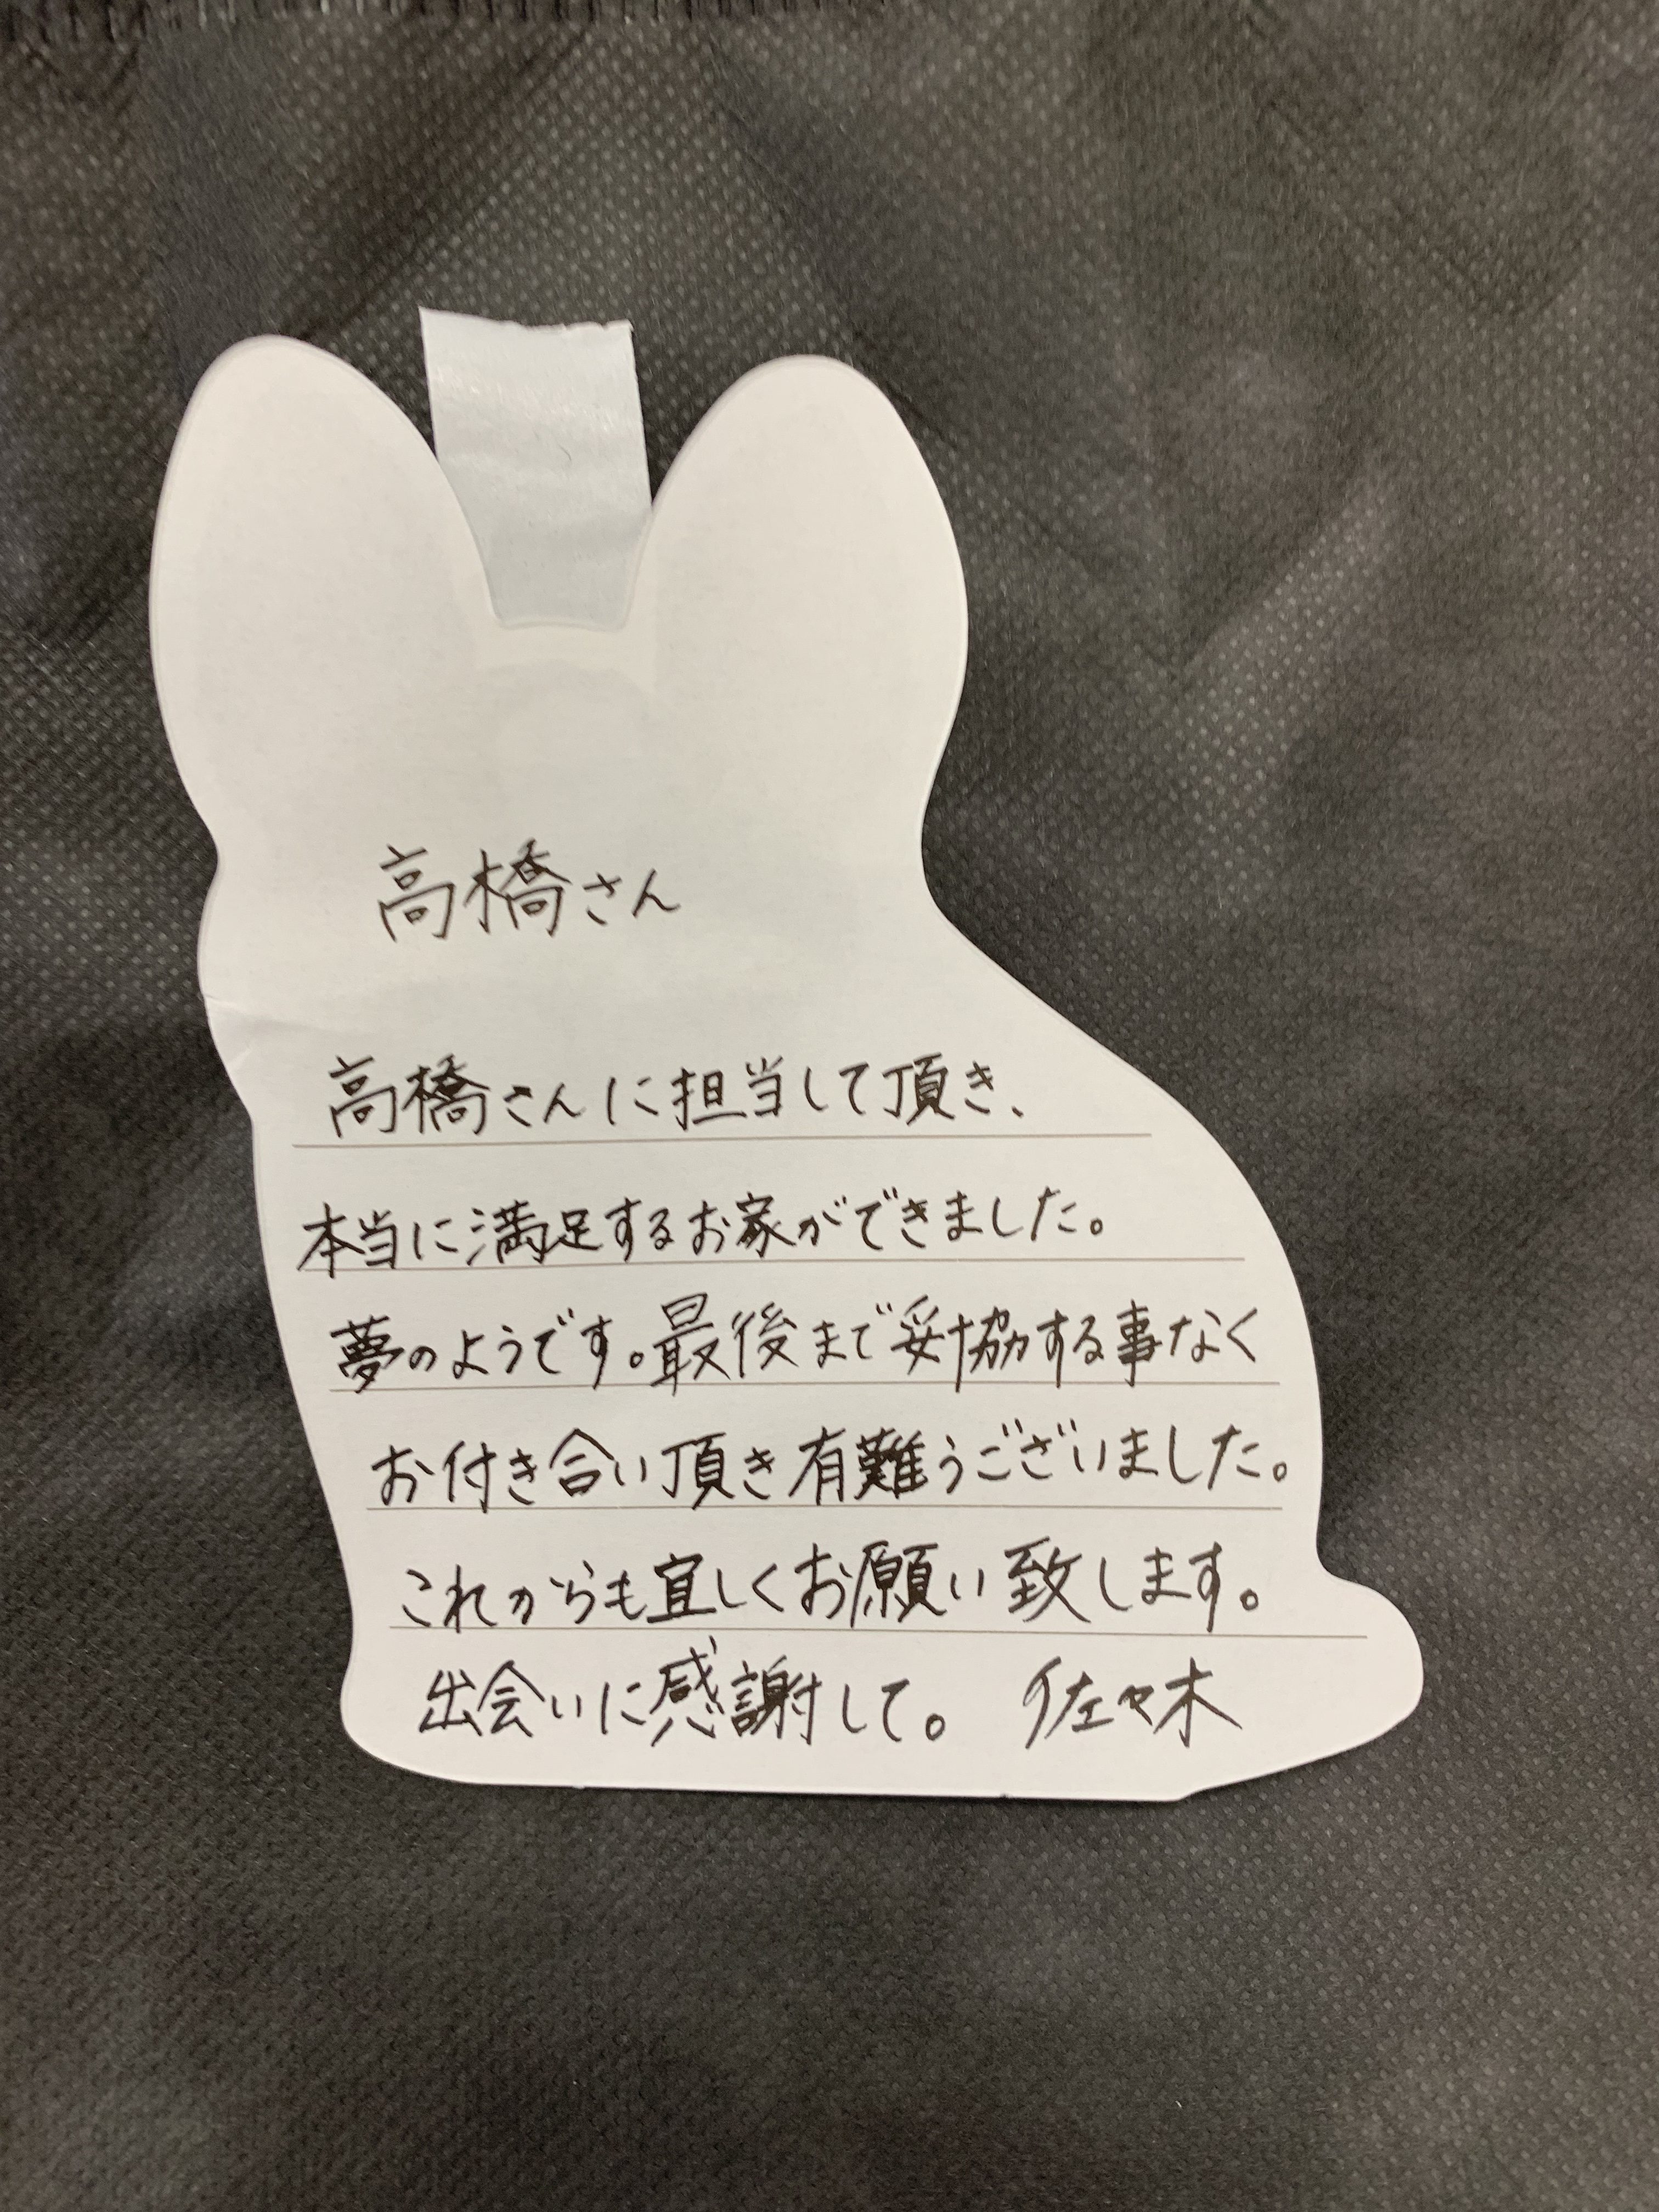 高橋さん
高橋さんに担当して頂き、
本当に満足するお家ができました。
夢のようです。最後まで妥協する事なく
お付き合い頂き有難うございました。
これからも宜しくお願い致します。
出会いに感謝して。 佐々木